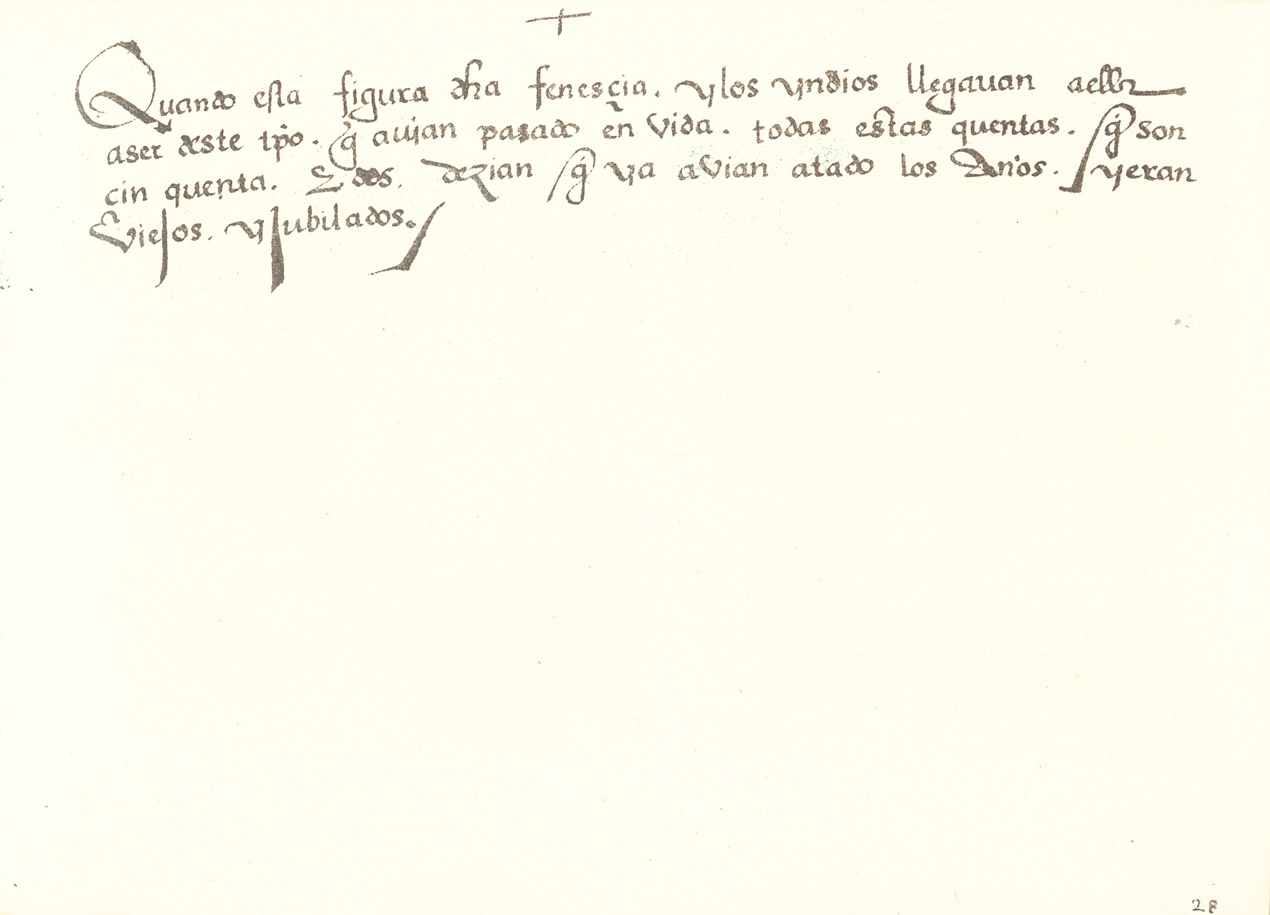 Quando esta figura dha fenesçia. y los yndios llegauan aello
aser deste tpo. q̃ auian pasado en vida. todas estas quentas. q̃ son
cinquenta. E dos. dezian q̃ ya avian atado los Años. y eran
Viejos. y Jubilados.
28